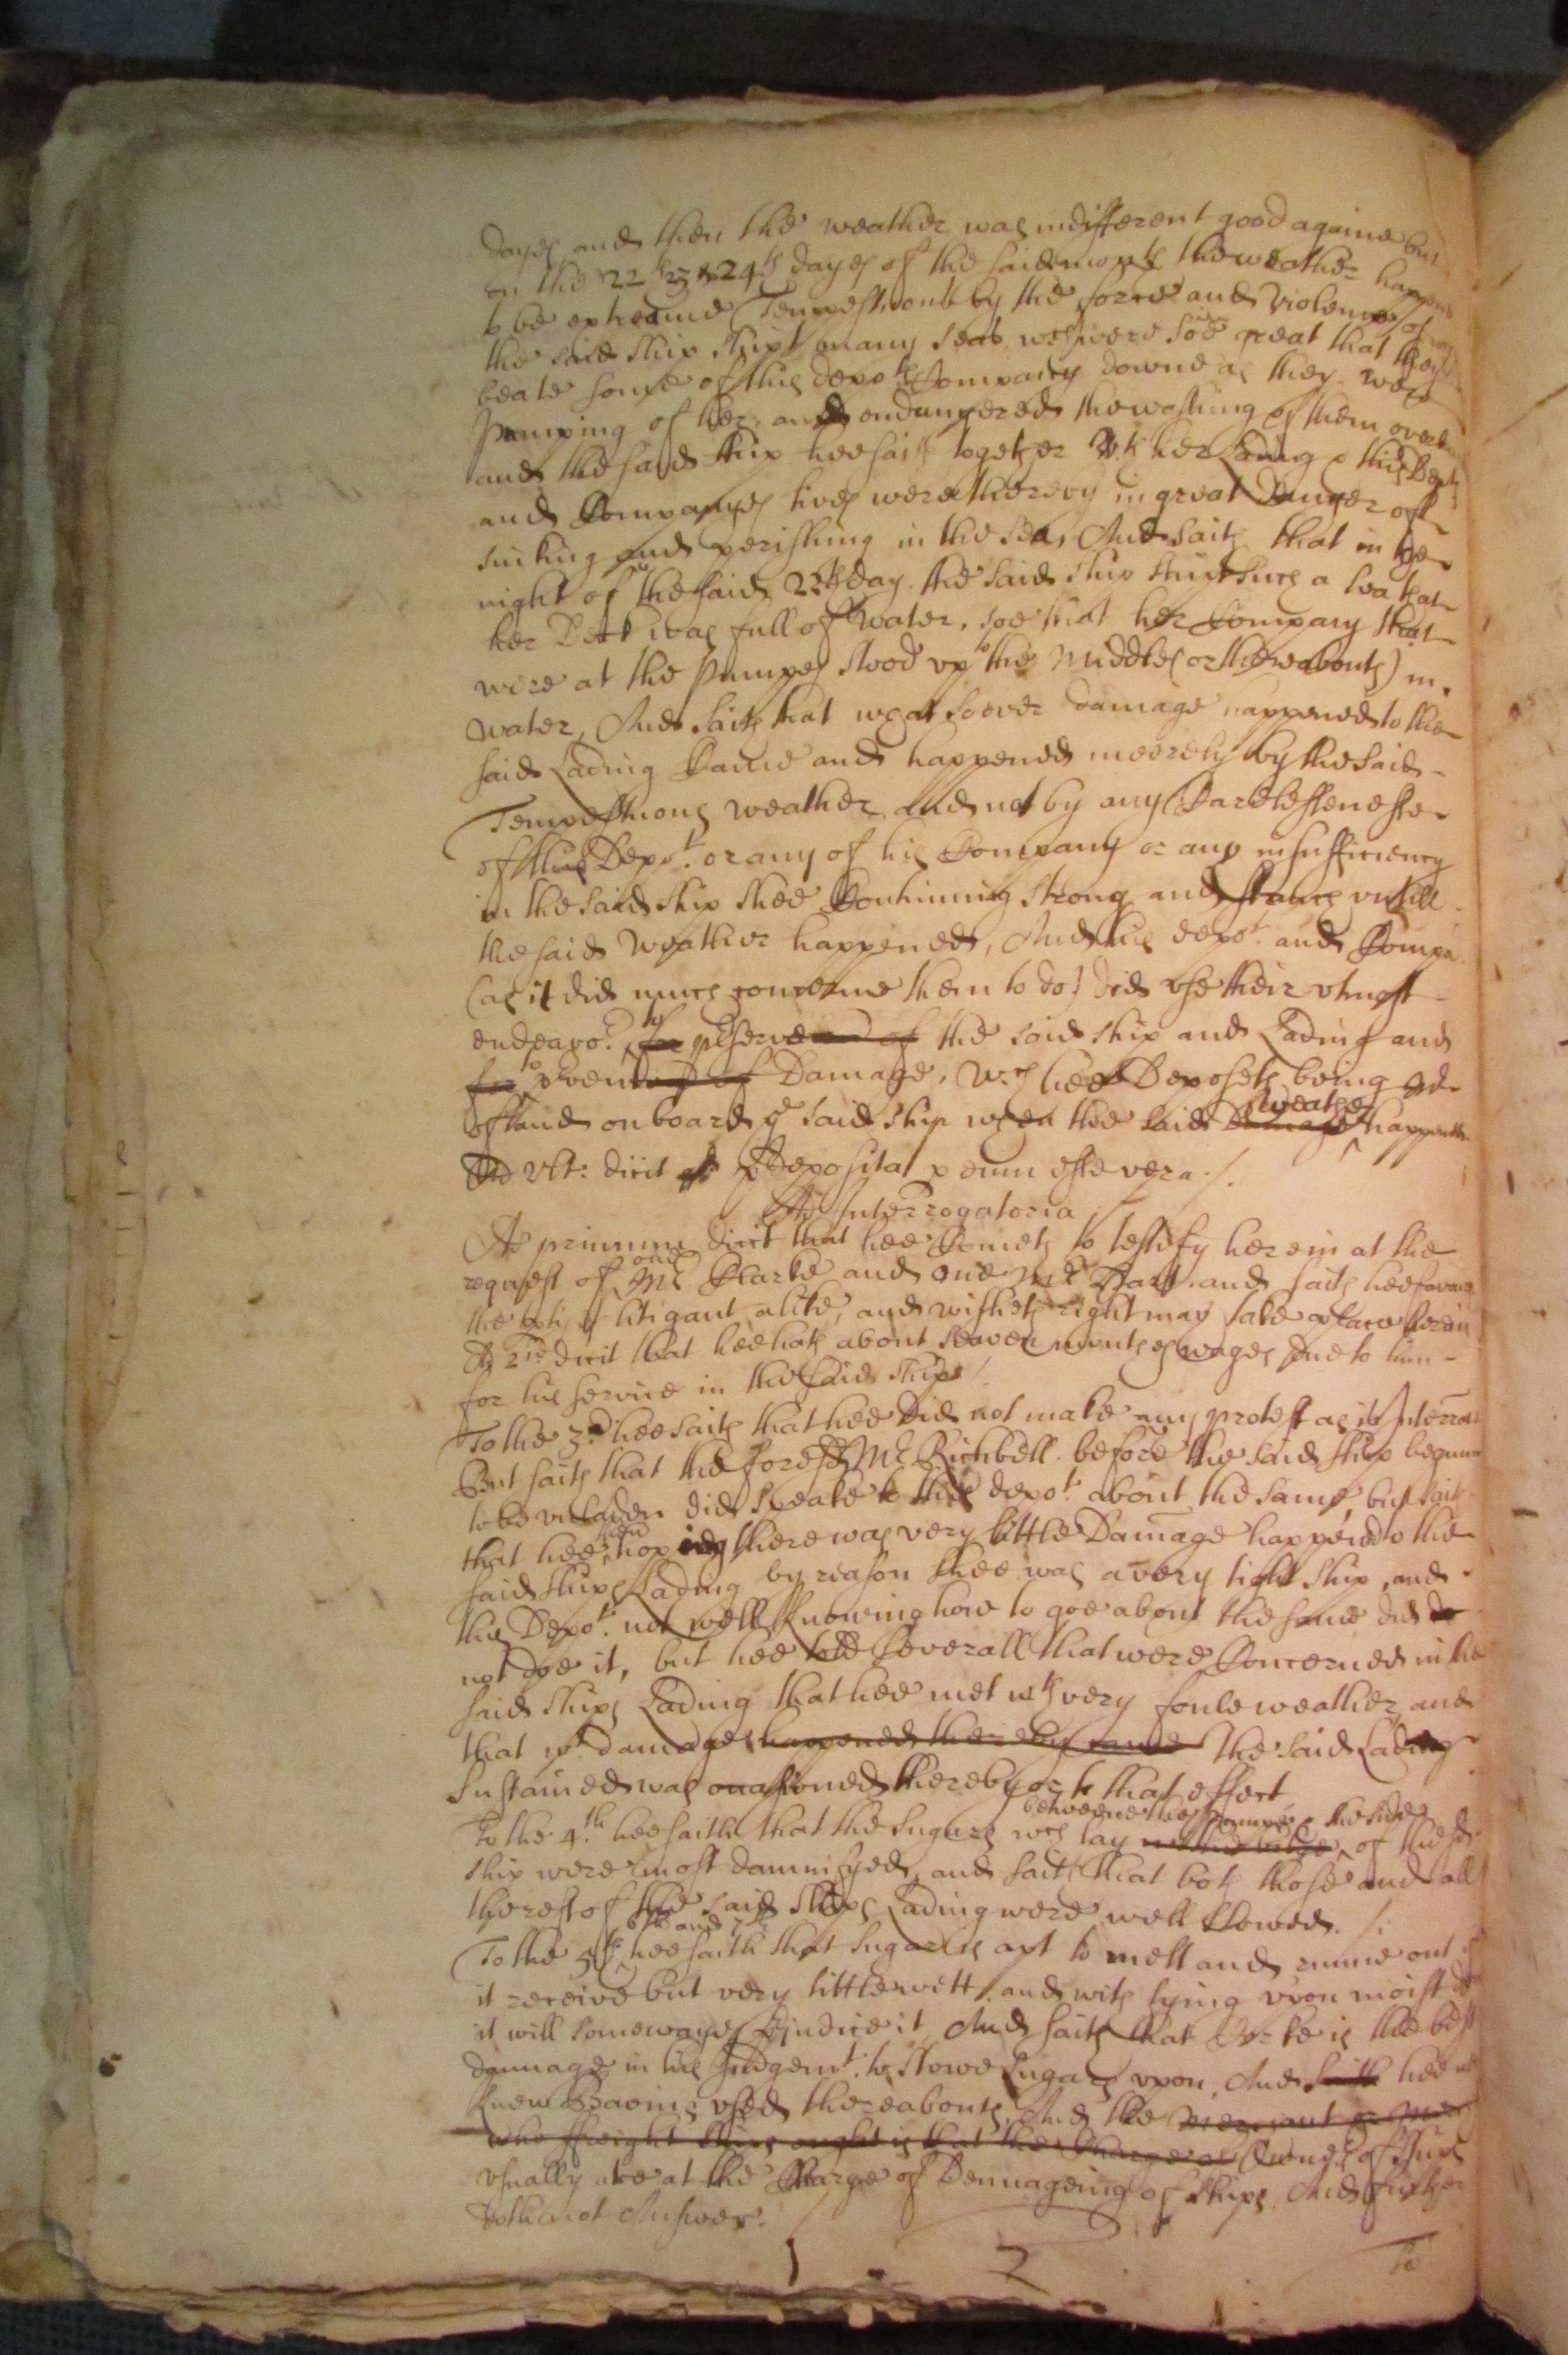 dayes and then the weather was indifferent good againe but
on the 22th 23 & 24th dayes of the said month the weather happened
to be extreame Tempestuous by the force and violence of wch
the said ship shipt many seas wch were soe great that they
beate some of this depots Company downe as they were
Pumping of her, and endangered the washing of them overboard
and the said ship hee saith together wth her Lading & this Depots
and Companyes lives were thereby in great Danger of
sinking and perishing in the sea, And saith that in the
night of the said 22th day the said ship shipt such a sea that
her Deck was full of water, soe that her Company that
were at the Pumpes stood vp to the Middles (or thereabouts) in
water, And saith that whatsoever damage happened to the
said Lading Came and happened meerely by the said
Tempestuous weather and not by any Carelessenesse
of this Depot. or any of his Company or any insufficiency
in the said ship shee Continuing strong and stanch vntill
the said weather happened, And this depot. and Compa
(as it did much concerne them to do) did vse their vtmost
endeavor. to for preserve of the said ship and Lading and
for to prvent of Damage, Wch hee Deposeth being
of and on board ye said ship when the said Damage weather happened
Ad vlt. dicit prdeposita p eum esse vera ./.
Ad Interrogatoria
Ad primum dicit that hee Cometh to testify herein at the
request of one Mr Clarke and one Mr Dart. and saith hee favours
the litigant alike, and wisheth right may take place herein
Ad 2dum dicit that hee hath about seaven monthes wages due to him
for his service in the said ship /
To the 3d hee saith that hee Did not make any protest as is Interrate
But saith that the foresd Mr Richbell before the said ship begunn
to be vnladen did speake to this depot. about the same, but saith
that hee then hoping there was very little Damage happened to the
said ships Lading by reason shee was a very tight ship, and
this Depot. not well Knowing how to goe about the same did do
not doe it, but hee told severall that were Concerned in the
said ships Lading that hee met wth very foule weather, and
that wt damages happened thereby came the said Lading
sustained was occasioned thereby or to that effect
To the 4.th hee saith that the sugars wch lay betweene the Pumpes & the sides of the sd
ship were most damnifyed, and saith that both those and all
the rest of the said ships Lading were well stowed. /.
To the 5th 6th and 7th hee saith that sugar is apt to melt and runne out if
it receive but very little wett. and with lying vpon moist
it will someways prjudice it, And saith that Corke is the best
dunnage in his Judgemt. to stowe sugars vpon, And saith hee
knew vsed thereabouts, And the Merchant or
who ffreight ships ought is that the Charge of Owners of ships
vsually are at the Charge of Dennageing of ships, And further
doth not Answer. /
To